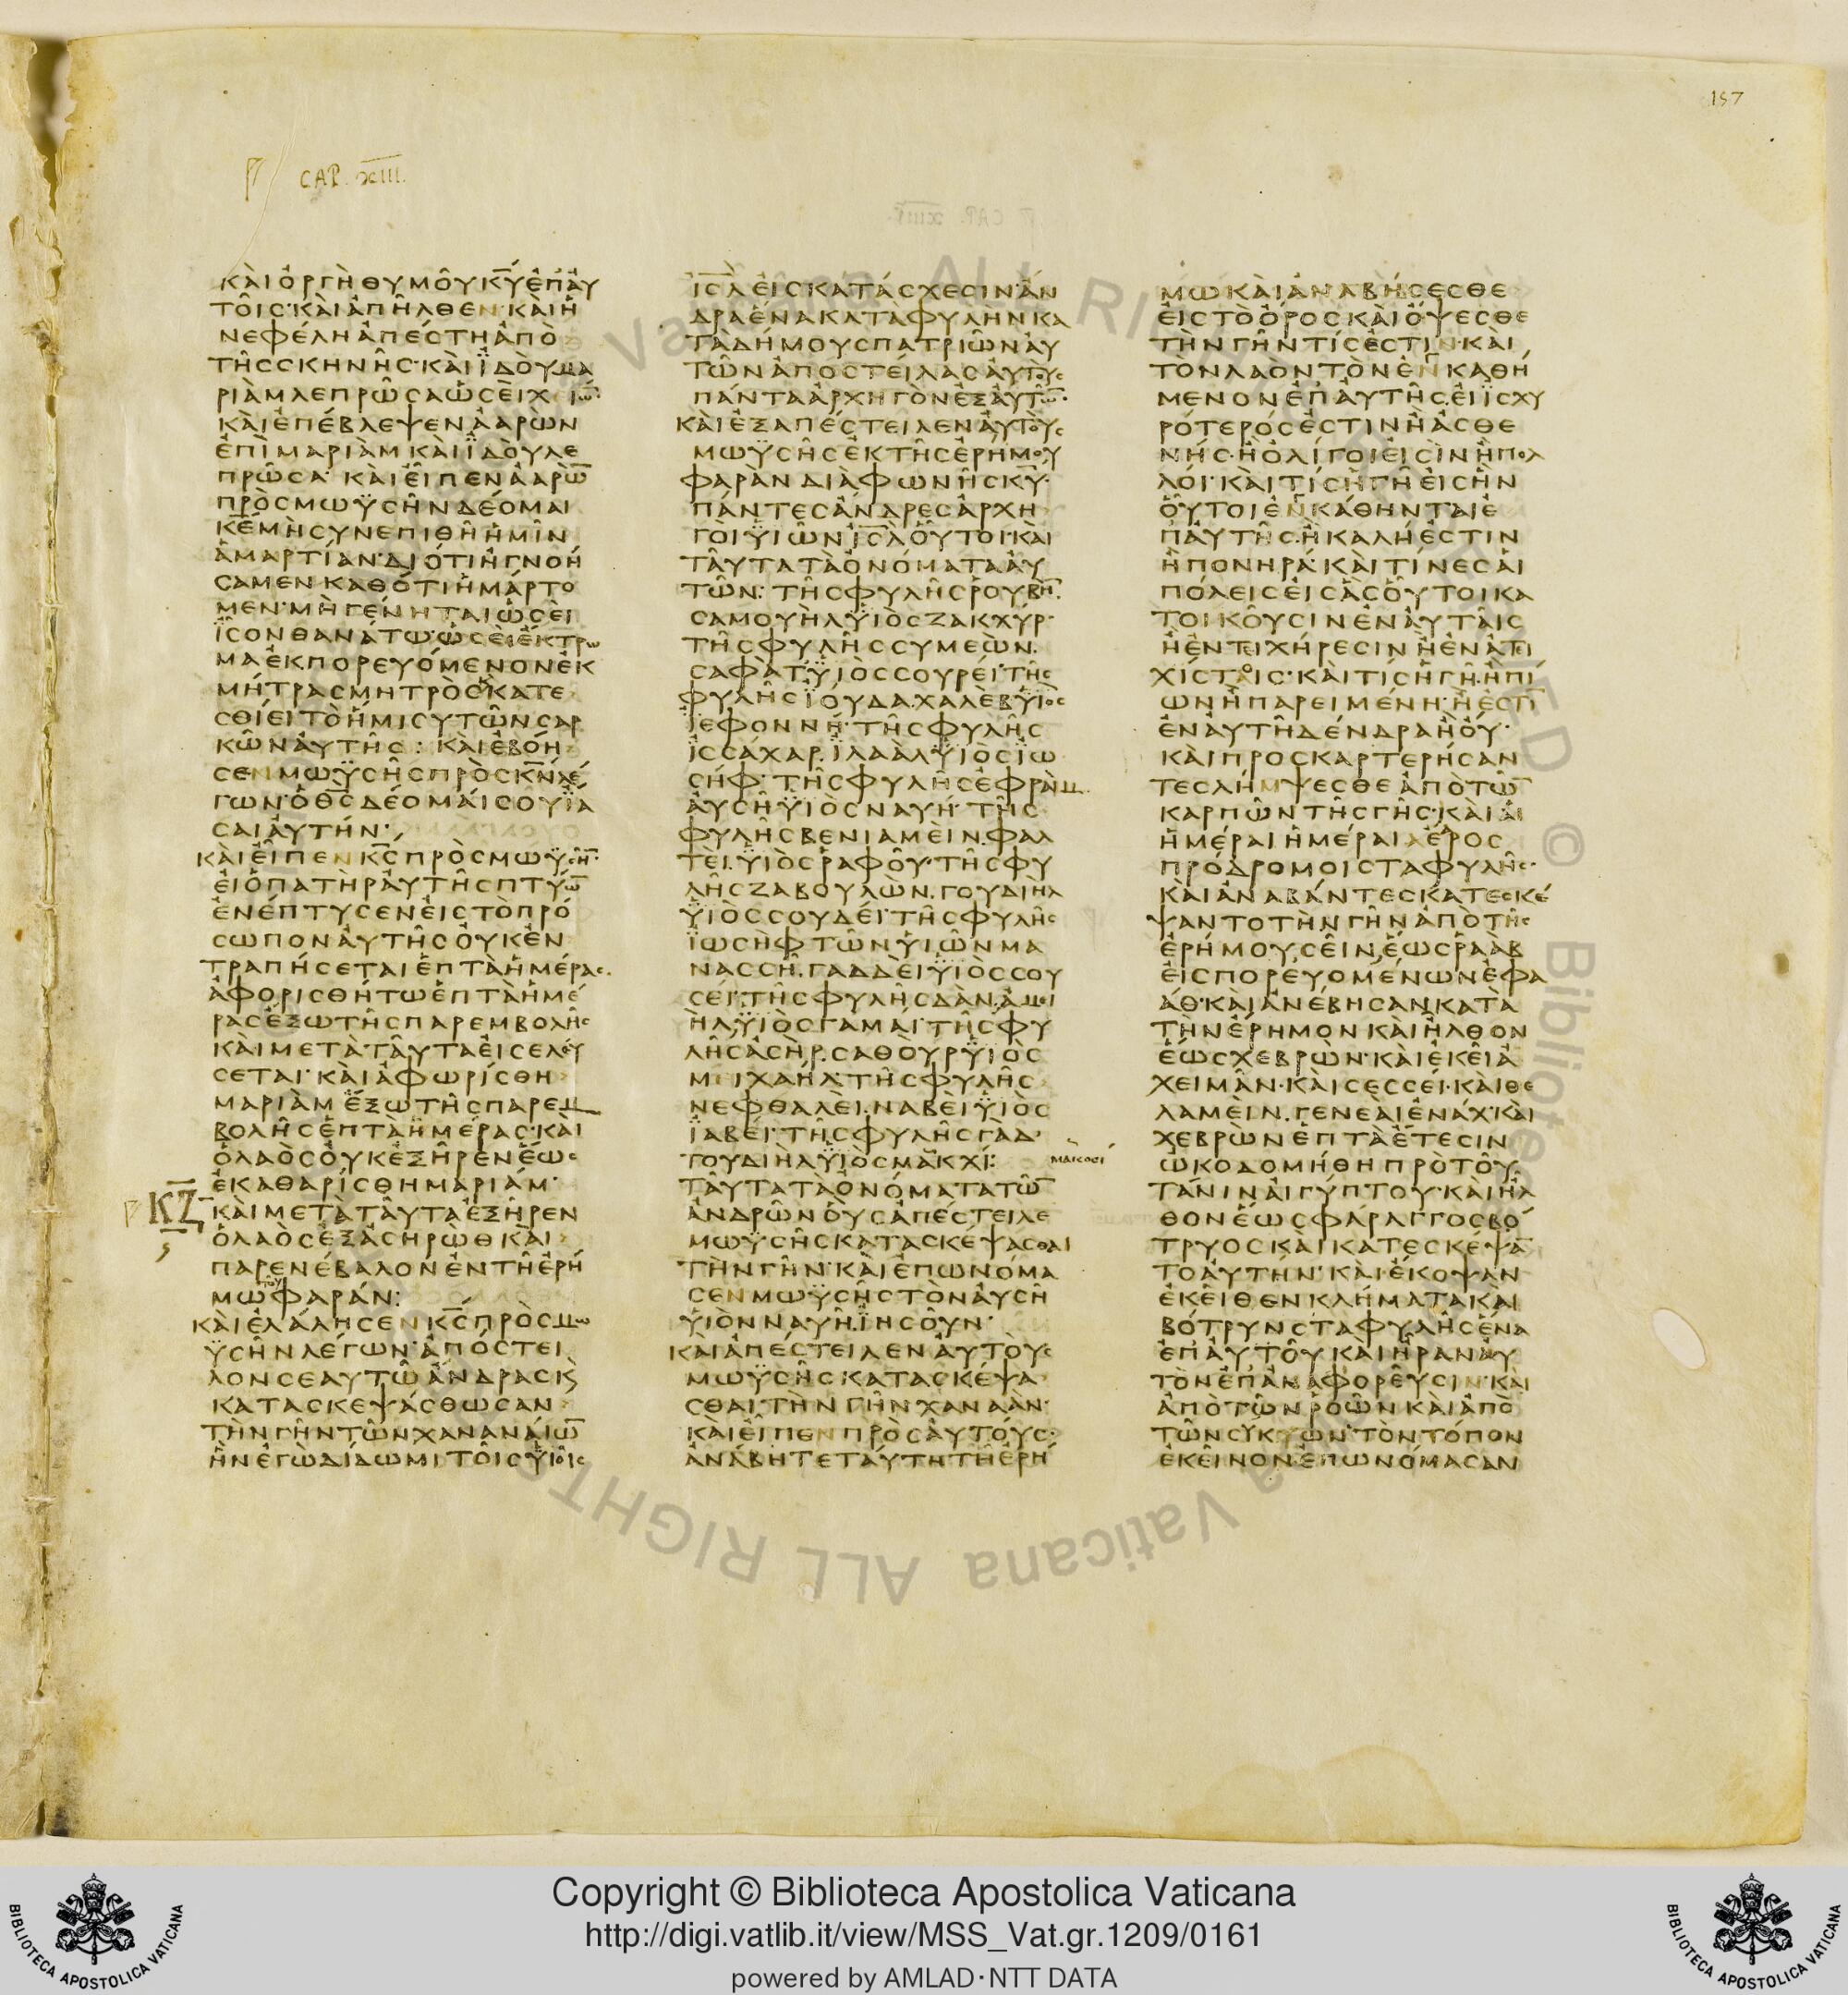 157
CAP. XIII.
ΚΑΙ ΟΡΓΗ ΘΥΜΟΥ ΚΥ ΕΠ ΑΥ
ΤΟΙΣ· ΚΑΙ ΑΠΗΛΘΕΝ· ΚΑΙ Η
ΝΕΦΕΛΗ ΑΠΕΣΤΗ ΑΠΟ
ΤΗΣ ΣΚΗΝΗΣ· ΚΑΙ ΙΔΟΥ ΜΑ
ΡΙΑΜ ΛΕΠΡΩΣΑ ΩΣΕΙ ΧΙΩ
ΚΑΙ ΕΠΕΒΛΕΨΕΝ ΑΑΡΩΝ
ΕΠΙ ΜΑΡΙΑΜ ΚΑΙ ΙΔΟΥ ΛΕ
ΠΡΩΣΑ· ΚΑΙ ΕΙΠΕΝ ΑΑΡΩ
ΠΡΟΣ ΜΩΥΣΗΝ ΔΕΟΜΑΙ
ΚΕ ΜΗ ΣΥΝΕΠΙΘΗ ΗΜΙΝ
ΑΜΑΡΤΙΑΝ· ΔΙΟΤΙ ΗΓΝΟΗ
ΣΑΜΕΝ ΚΑΘΟΤΙ ΗΜΑΡΤΟ
ΜΕΝ· ΜΗ ΓΕΝΗΤΑΙ ΩΣΕΙ
ΙΣΟΝ ΘΑΝΑΤΩ· ΩΣΕΙ ΕΚΤΡΩ
ΜΑ ΕΚΠΟΡΕΥΟΜΕΝΟΝ ΕΚ
ΜΗΤΡΑΣ ΜΗΤΡΟΣ ΚΑΤΕ
ΣΘΙΕΙ ΤΟ ΗΜΙΣΥ ΤΩΝ ΣΑΡ
ΚΩΝ ΑΥΤΗΣ: ΚΑΙ ΕΒΟΗ
ΣΕΝ ΜΩΥΣΗΣ ΠΡΟΣ ΚΝ ΛΕ
ΓΩΝ· Ο ΘΣ ΔΕΟΜΑΙ ΣΟΥ ΙΑ
ΣΑΙ ΑΥΤΗΝ·
ΚΑΙ ΕΙΠΕΝ ΚΣ ΠΡΟΣ ΜΩΥΣΗ
ΕΙ Ο ΠΑΤΗΡ ΑΥΤΗΣ ΠΤΥΩ
ΕΝΕΠΤΥΣΕΝ ΕΙΣ ΤΟ ΠΡΟ
ΣΩΠΟΝ ΑΥΤΗΣ ΟΥΚ ΕΝ
ΤΡΑΠΗΣΕΤΑΙ ΕΠΤΑ ΗΜΕΡΑΣ.
ΑΦΟΡΙΣΘΗΤΩ ΕΠΤΑ ΗΜΕ
ΡΑΣ ΕΞΩ ΤΗΣ ΠΑΡΕΜΒΟΛΗΣ
ΚΑΙ ΜΕΤΑ ΤΑΥΤΑ ΕΙΣΕΛΕΥ
ΣΕΤΑΙ· ΚΑΙ ΑΦΩΡΙΣΘΗ
ΜΑΡΙΑΜ ΕΞΩ ΤΗΣ ΠΑΡΕΜ
ΒΟΛΗΣ ΕΠΤΑ ΗΜΕΡΑΣ· ΚΑΙ
Ο ΛΑΟΣ ΟΥΚ ΕΞΗΡΕΝ ΕΩΣ
ΕΚΑΘΑΡΙΣΘΗ ΜΑΡΙΑΜ·
ΚΖ ΚΑΙ ΜΕΤΑ ΤΑΥΤΑ ΕΞΗΡΕΝ
Ο ΛΑΟΣ ΕΞ ΑΣΗΡΩΘ ΚΑΙ
ΠΑΡΕΝΕΒΑΛΟΝ ΕΝ ΤΗ ΕΡΗ
ΜΩ ΤΟΥ ΦΑΡΑΝ:
ΚΑΙ ΕΛΑΛΗΣΕΝ ΚΣ ΠΡΟΣ ΜΩ
ΥΣΗΝ ΛΕΓΩΝ· ΑΠΟΣΤΕΙ
ΛΟΝ ΣΕΑΥΤΩ ΑΝΔΡΑΣ Κ
ΚΑΤΑΣΚΕΨΑΣΘΩΣΑΝ
ΤΗΝ ΓΗΝ ΤΩΝ ΧΑΝΑΝΑΙΩ
ΗΝ ΕΓΩ ΔΙΔΩΜΙ ΤΟΙΣ ΥΙΟΙΣ
ΙΣΛ ΕΙΣ ΚΑΤΑΣΧΕΣΙΝ· ΑΝ
ΔΡΑ ΕΝΑ ΚΑΤΑ ΦΥΛΗΝ ΚΑ
ΤΑ ΔΗΜΟΥΣ ΠΑΤΡΙΩΝ ΑΥ
ΤΩΝ ΑΠΟΣΤΕΙΛΑΣ ΑΥΤΟΥΣ
ΠΑΝΤΑ ΑΡΧΗΓΟΝ ΕΞ ΑΥΤΩ·
ΚΑΙ ΕΞΑΠΕΣΤΕΙΛΕΝ ΑΥΤΟΥΣ
ΜΩΥΣΗΣ ΕΚ ΤΗΣ ΕΡΗΜΟΥ
ΦΑΡΑΝ ΔΙΑ ΦΩΝΗΣ ΚΥ·
ΠΑΝΤΕΣ ΑΝΔΡΕΣ ΑΡΧΗ
ΓΟΙ ΥΙΩΝ ΙΣΛ ΟΥΤΟΙ· ΚΑΙ
ΤΑΥΤΑ ΤΑ ΟΝΟΜΑΤΑ ΑΥ
ΤΩΝ· ΤΗΣ ΦΥΛΗΣ ΡΟΥΒΗ·
ΣΑΜΟΥΗΛ ΥΙΟΣ ΖΑΚΧΥΡ·
ΤΗΣ ΦΥΛΗΣ ΣΥΜΕΩΝ.
ΣΑΦΑΤ ΥΙΟΣ ΣΟΥΡΕΙ· ΤΗΣ
ΦΥΛΗΣ ΙΟΥΔΑ. ΧΑΛΕΒ ΥΙΟΣ
ΙΕΦΟΝΝΗ· ΤΗΣ ΦΥΛΗΣ
ΙΣΣΑΧΑΡ. ΙΛΑΑΛ ΥΙΟΣ ΙΩ
ΣΗΦ· ΤΗΣ ΦΥΛΗΣ ΕΦΡΑΙΜ.
ΑΥΣΗ ΥΙΟΣ ΝΑΥΗ· ΤΗΣ
ΦΥΛΗΣ ΒΕΝΙΑΜΕΙΝ. ΦΑΛ
ΤΕΙ. ΥΙΟΣ ΡΑΦΟΥ· ΤΗΣ ΦΥ
ΛΗΣ ΖΑΒΟΥΛΩΝ. ΓΟΥΔΙΗΛ
ΥΙΟΣ ΣΟΥΔΕΙ· ΤΗΣ ΦΥΛΗΣ
ΙΩΣΗΦ ΤΩΝ ΥΙΩΝ ΜΑ
ΝΑΣΣΗ. ΓΑΔΔΕΙ ΥΙΟΣ ΣΟΥ
ΣΕΙ· ΤΗΣ ΦΥΛΗΣ ΔΑΝ. ΑΜΕΙ
ΗΛ ΥΙΟΣ ΓΑΜΑΙ· ΤΗΣ ΦΥ
ΛΗΣ ΑΣΗΡ. ΣΑΘΟΥΡ ΥΙΟΣ
ΜΕΙΧΑΗΛ· ΤΗΣ ΦΥΛΗΣ
ΝΕΦΘΑΛΕΙ. ΝΑΒΕΙ ΥΙΟΣ
ΙΑΒΕΙ· ΤΗΣ ΦΥΛΗΣ ΓΑΔ·
ΓΟΥΔΙΗΛ ΥΙΟΣ ΜΑΚΧΙ:
ΜΑΚΟΣΙ
ΤΑΥΤΑ ΤΑ ΟΝΟΜΑΤΑ ΤΩ
ΑΝΔΡΩΝ ΟΥΣ ΑΠΕΣΤΕΙΛΕ
ΜΩΥΣΗΣ ΚΑΤΑΣΚΕΨΑΣΘΑΙ
ΤΗΝ ΓΗΝ· ΚΑΙ ΕΠΩΝΟΜΑ
ΣΕΝ ΜΩΥΣΗΣ ΤΟΝ ΑΥΣΗ
ΥΙΟΝ ΝΑΥΗ. ΙΗΣΟΥΝ·
ΚΑΙ ΑΠΕΣΤΕΙΛΕΝ ΑΥΤΟΥΣ
ΜΩΥΣΗΣ ΚΑΤΑΣΚΕΨΑ
ΣΘΑΙ ΤΗΝ ΓΗΝ ΧΑΝΑΑΝ·
ΚΑΙ ΕΙΠΕΝ ΠΡΟΣ ΑΥΤΟΥΣ·
ΑΝΑΒΗΤΕ ΤΑΥΤΗ ΤΗ ΕΡΗ
ΜΩ ΚΑΙ ΑΝΑΒΗΣΕΣΘΕ
ΕΙΣ ΤΟ ΟΡΟΣ ΚΑΙ ΟΨΕΣΘΕ
ΤΗΝ ΓΗΝ ΤΙΣ ΕΣΤΙΝ· ΚΑΙ
ΤΟΝ ΛΑΟΝ ΤΟΝ ΕΝΚΑΘΗ
ΜΕΝΟΝ ΕΠ ΑΥΤΗΣ. ΕΙ ΙΣΧΥ
ΡΟΤΕΡΟΣ ΕΣΤΙΝ Η ΑΣΘΕ
ΝΗΣ· Η ΟΛΙΓΟΙ ΕΙΣΙΝ Η ΠΟΛ
ΛΟΙ· ΚΑΙ ΤΙΣ Η ΓΗ ΕΙΣ ΗΝ
ΟΥΤΟΙ ΕΝΚΑΘΗΝΤΑΙ Ε
Π ΑΥΤΗΣ. Η ΚΑΛΗ ΕΣΤΙΝ
Η ΠΟΝΗΡΑ· ΚΑΙ ΤΙΝΕΣ ΑΙ
ΠΟΛΕΙΣ ΕΙΣ ΑΣ ΟΥΤΟΙ ΚΑ
ΤΟΙΚΟΥΣΙΝ ΕΝ ΑΥΤΑΙΣ
Η ΕΝ ΤΕΙΧΗΡΕΣΙΝ Η ΕΝ ΑΤΕΙ
ΧΙΣΤΟΙΣ· ΚΑΙ ΤΙΣ Η ΓΗ. Η ΠΙ
ΩΝ Η ΠΑΡΕΙΜΕΝΗ· Η ΕΣΤΙ
ΕΝ ΑΥΤΗ ΔΕΝΔΡΑ Η ΟΥ·
ΚΑΙ ΠΡΟΣΚΑΡΤΕΡΗΣΑΝ
ΤΕΣ ΛΗΜΨΕΣΘΕ ΑΠΟ ΤΩ
ΚΑΡΠΩΝ ΤΗΣ ΓΗΣ· ΚΑΙ ΑΙ
ΗΜΕΡΑΙ ΗΜΕΡΑΙ ΑΕΡΟΣ
ΠΡΟΔΡΟΜΟΙ ΣΤΑΦΥΛΗΣ·
ΚΑΙ ΑΝΑΒΑΝΤΕΣ ΚΑΤΕΣΚΕ
ΨΑΝΤΟ ΤΗΝ ΓΗΝ ΑΠΟ ΤΗΣ
ΕΡΗΜΟΥ ΣΕΙΝ, ΕΩΣ ΡΑΑΒ
ΕΙΣΠΟΡΕΥΟΜΕΝΩΝ ΕΦΑ
ΑΘ· ΚΑΙ ΑΝΕΒΗΣΑΝ ΚΑΤΑ
ΤΗΝ ΕΡΗΜΟΝ ΚΑΙ ΗΛΘΟΝ
ΕΩΣ ΧΕΒΡΩΝ· ΚΑΙ ΕΚΕΙ Α
ΧΕΙΜΑΝ· ΚΑΙ ΣΕΣΣΕΙ· ΚΑΙ ΘΕ
ΛΑΜΕΙΝ. ΓΕΝΕΑΙ ΕΝΑΧ· ΚΑΙ
ΧΕΒΡΩΝ ΕΠΤΑ ΕΤΕΣΙΝ
ΩΚΟΔΟΜΗΘΗ ΠΡΟ ΤΟΥ
ΤΑΝΙΝ ΑΙΓΥΠΤΟΥ· ΚΑΙ ΗΛ
ΘΟΝ ΕΩΣ ΦΑΡΑΓΓΟΣ ΒΟ
ΤΡΥΟΣ ΚΑΙ ΚΑΤΕΣΚΕΨΑ
ΤΟ ΑΥΤΗΝ· ΚΑΙ ΕΚΟΨΑΝ
ΕΚΕΙΘΕΝ ΚΛΗΜΑΤΑ ΚΑΙ
ΒΟΤΡΥΝ ΣΤΑΦΥΛΗΣ ΕΝΑ
ΕΠ ΑΥΤΟΥ ΚΑΙ ΗΡΑΝ ΑΥ
ΤΟΝ ΕΠ ΑΝΑΦΟΡΕΥΣΙΝ· ΚΑΙ
ΑΠΟ ΤΩΝ ΡΟΩΝ ΚΑΙ ΑΠΟ
ΤΩΝ ΣΥΚΩΝ· ΤΟΝ ΤΟΠΟΝ
ΕΚΕΙΝΟΝ ΕΠΩΝΟΜΑΣΑΝ
Copyright © Biblioteca Apostolica Vaticana
http://digi.vatlib.it/view/MSS_Vat.gr.1209/0161
powered by AMLAD·NTT DATA
BIBLIOTECA APOSTOLICA VATICANA
BIBLIOTECA APOSTOLICA VATICANA